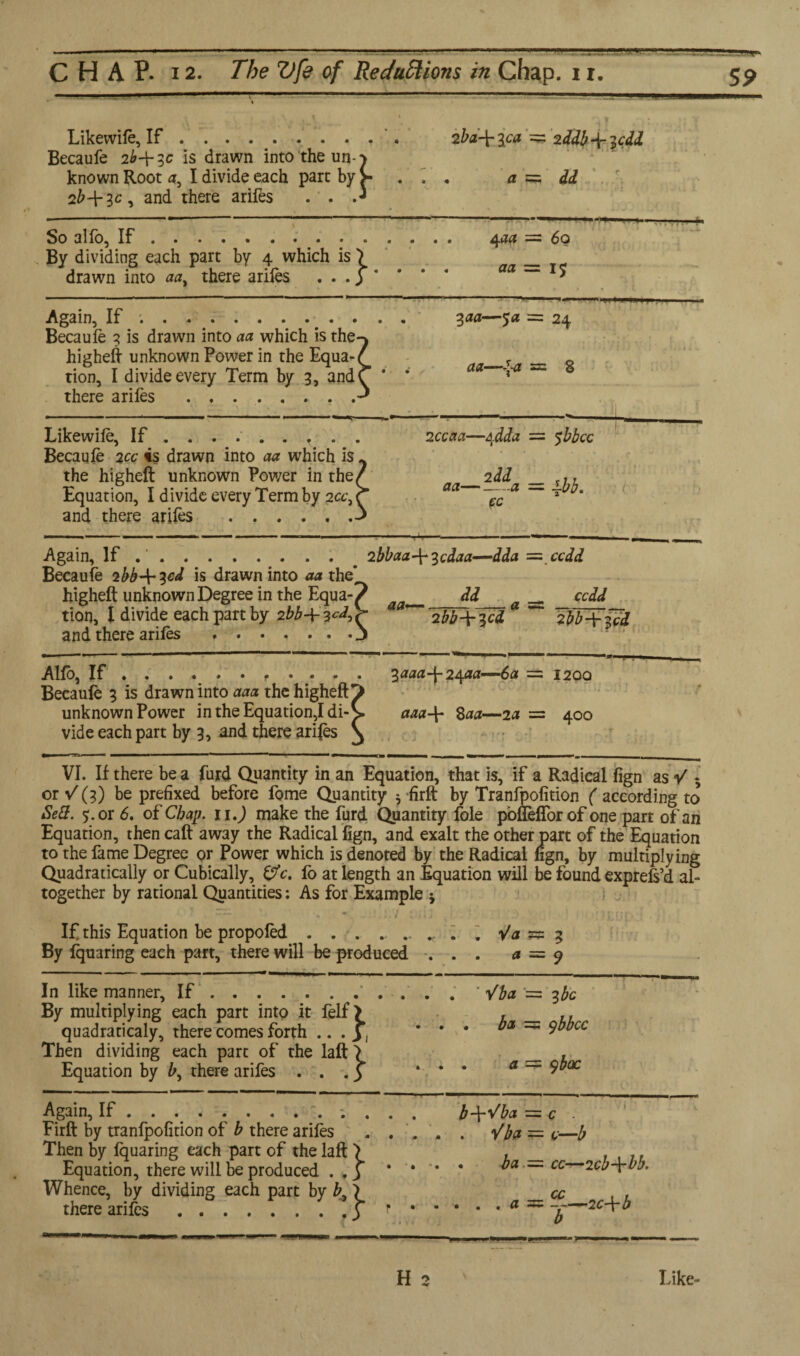 CHAP. 12. The Vſe of Reductions in Chap. 11. 59
Likewiſe, If . . . . . . . . . . . 2ba+3ca = 2ddb+3cdd
Becauſe 2b+3c is drawn into the un-
known Root a, I divide each part by . . . a = dd
2b+3c, and there ariſes . . .
So alſo, If . . . . . . . . . . . . . . 4aa = 60
By dividing each part by 4 which is
drawn into aa, there ariſes . . . aa = 15
Again, If . . . . . . . . . . . . 3aa—5a = 24
Becauſe 3 is drawn into aa which is the
higheſt unknown Power in the Equa-
tion, I divide every Term by 3, and . . aa—5/3a = 8
there ariſes . . . . . . . .
Likewiſe, If . . . . . . . . . . 2ccaa—4dda = 5bbcc
Becauſe 2cc is drawn into aa which is
the higheſt unknown Power in the
Equation, I divide every Term by 2cc, aa—2dd/cc a = 5/2bb.
and there ariſes . . . . . .
Again, If . . . . . . . . . . 2bbaa+3cdaa—dda = ccdd
Becauſe 2bb+3cd is drawn into aa the
higheſt unknown Degree in the Equa-
tion, I divide each part by 2bb+3cd, aa—dd/2bb+3cd a = ccdd/2bb+3cd
and there ariſes . . . . . . .
Alſo, If . . . . . . . . . . . 3aaa+24aa—6a = 1200
Becauſe 3 is drawn into aaa the higheſt
unknown Power in the Equation, I di- aaa+ 8aa—2a = 400
vide each part by 3, and there ariſes
VI. If there be a ſurd Quantity in an Equation, that is, if a Radical ſign as √ ;
or √(3) be prefixed before ſome Quantity ; firſt by Tranſpoſition ( according to
Sect. 5. or 6. of Chap. 11.) make the ſurd Quantity ſole poſſeſſor of one part of an
Equation, then caſt away the Radical ſign, and exalt the other part of the Equation
to the ſame Degree or Power which is denoted by the Radical ſign, by multiplying
Quadratically or Cubically, &c. ſo at length an Equation will be found expreſs'd al-
together by rational Quantities: As for Example ;
If this Equation be propoſed . . . . . . . . . √a = 3
By ſquaring each part, there will be produced . . . a = 9
In like manner, If . . . . . . . . . . . . √ba = 3bc
By multiplying each part into it ſelf
quadraticaly, there comes forth . . . . . . ba = 9bbcc
Then dividing each part of the laſt
Equation by b, there ariſes . . . . . . a = 9bcc
Again, If . . . . . . . . . . . . . b+√ba = c
Firſt by tranſpoſition of b there ariſes . . . . . √ba = c—b
Then by ſquaring each part of the laſt
Equation, there will be produced . . . . . . ba = cc—2cb+bb.
Whence, by dividing each part by b,
there ariſes . . . . . . . . . . . . . . a = cc/b—2c+b
H 2 Like-